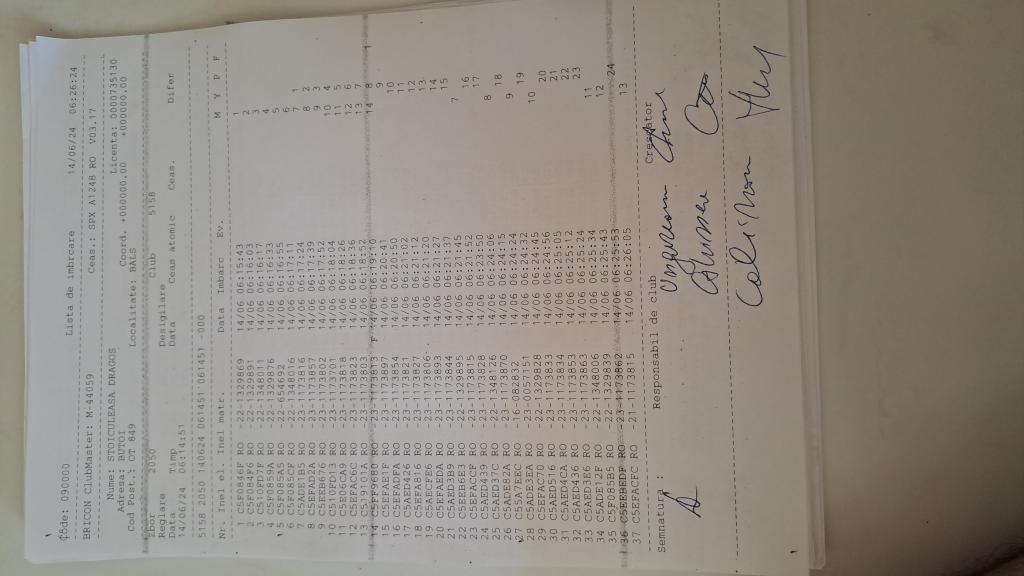 Côde: 090000 Lista de imbrcare 14/06/24 06:26:24
BRICON ClubMaster: M-44059 Ceas.: SPX A1248 RO V03.17
Nume: STOICULEASA DRAGOS Licenta: 0000735130
Adresa: BUTOI Coord. +000000.00 +000000.00
Cod Post.: OT 849 Localitate: BALS
Zbor 2050 Club 5158
Reglare Desigilare
Data Timp Data Ceas Atomic Ceas. Difer
14/06/24 06:14:51
5158 2050 140624 061451 061451 -000
Nr. Inel el. Inel matr. Data Imbarc Ev. M Y P F
1 C5F0846F RO -22-1329869 14/06 06:15:43 1
2 C5F084F6 RO -22-1329891 14/06 06:16:03 2
3 C510FD7F RO -22-1348011 14/06 06:16:17 3
4 C5F0859A RO -22-1329876 14/06 06:16:33 4
5 C5F085A5 RO -22-654692 14/06 06:16:55 5
6 C5F085CF RO -22-1348016 14/06 06:17:11 6
7 C5ADE1B5 RO -23-1173816 14/06 06:17:24 7 1
8 C5EFAD2A RO -23-1173857 14/06 06:17:39 8 2
9 C5EEB676 RO -23-1173802 14/06 06:17:52 9 3
10 C510FD13 RO -23-1173701 14/06 06:18:04 10 4
11 C5E06CA9 RO -23-1173818 14/06 06:18:26 11 5
12 C5EFAC6C RO -23-1173823 14/06 06:18:36 12 6
13 C519103A RO -23-1173803 14/06 06:18:52 13 7
14 C5FF9680 RO -23-1173813 F 14/06 06:19:10 14 8 1
15 C5EFAE1F RO -23-1173897 14/06 06:20:41 9
16 C5EFADFA RO -23-1173854 14/06 06:20:50 10
17 C5AED426 RO -23-1173821 14/06 06:21:02 11
18 C5EFA816 RO -23-1173827 14/06 06:21:12 12
19 C5AECFE6 RO -23-1173806 14/06 06:21:20 13
20 C5EFAEDA RO -23-1173893 14/06 06:21:27 14
21 C5AED3B9 RO -23-1173844 14/06 06:21:37 15
22 C5EEB6E3 RO -22-1329895 14/06 06:21:45 7
23 C5EFACCF RO -23-1173815 14/06 06:21:52 16
24 C5AED439 RO -23-1173828 14/06 06:23:50 17
25 C5AED37C RO -22-1348126 14/06 06:24:06 8
26 C5ADE82A RO -23-1173870 14/06 06:24:15 18
27 C5A7EEEC RO -16-082832 14/06 06:24:24 9
28 C5ADE3EA RO -23-0057151 14/06 06:24:32 19
29 C5EFAC70 RO -22-1329828 14/06 06:24:45 10
30 C5AED516 RO -23-1173833 14/06 06:24:56 20
31 C5AED4CA RO -23-1173834 14/06 06:25:05 21
32 C5AED416 RO -23-1173853 14/06 06:25:12 22
33 C5AED3E6 RO -23-1173863 14/06 06:25:24 23
34 C5ADE12F RO -22-1348006 14/06 06:25:34 11
35 C5F085B5 RO -22-1329839 14/06 06:25:43 12
36 C5EEB8DF RO -23-1173862 14/06 06:25:53 24
37 C5EFACFC RO -21-1173815 14/06 06:26:05 13
Semnatura : Responsabil de club Crescator